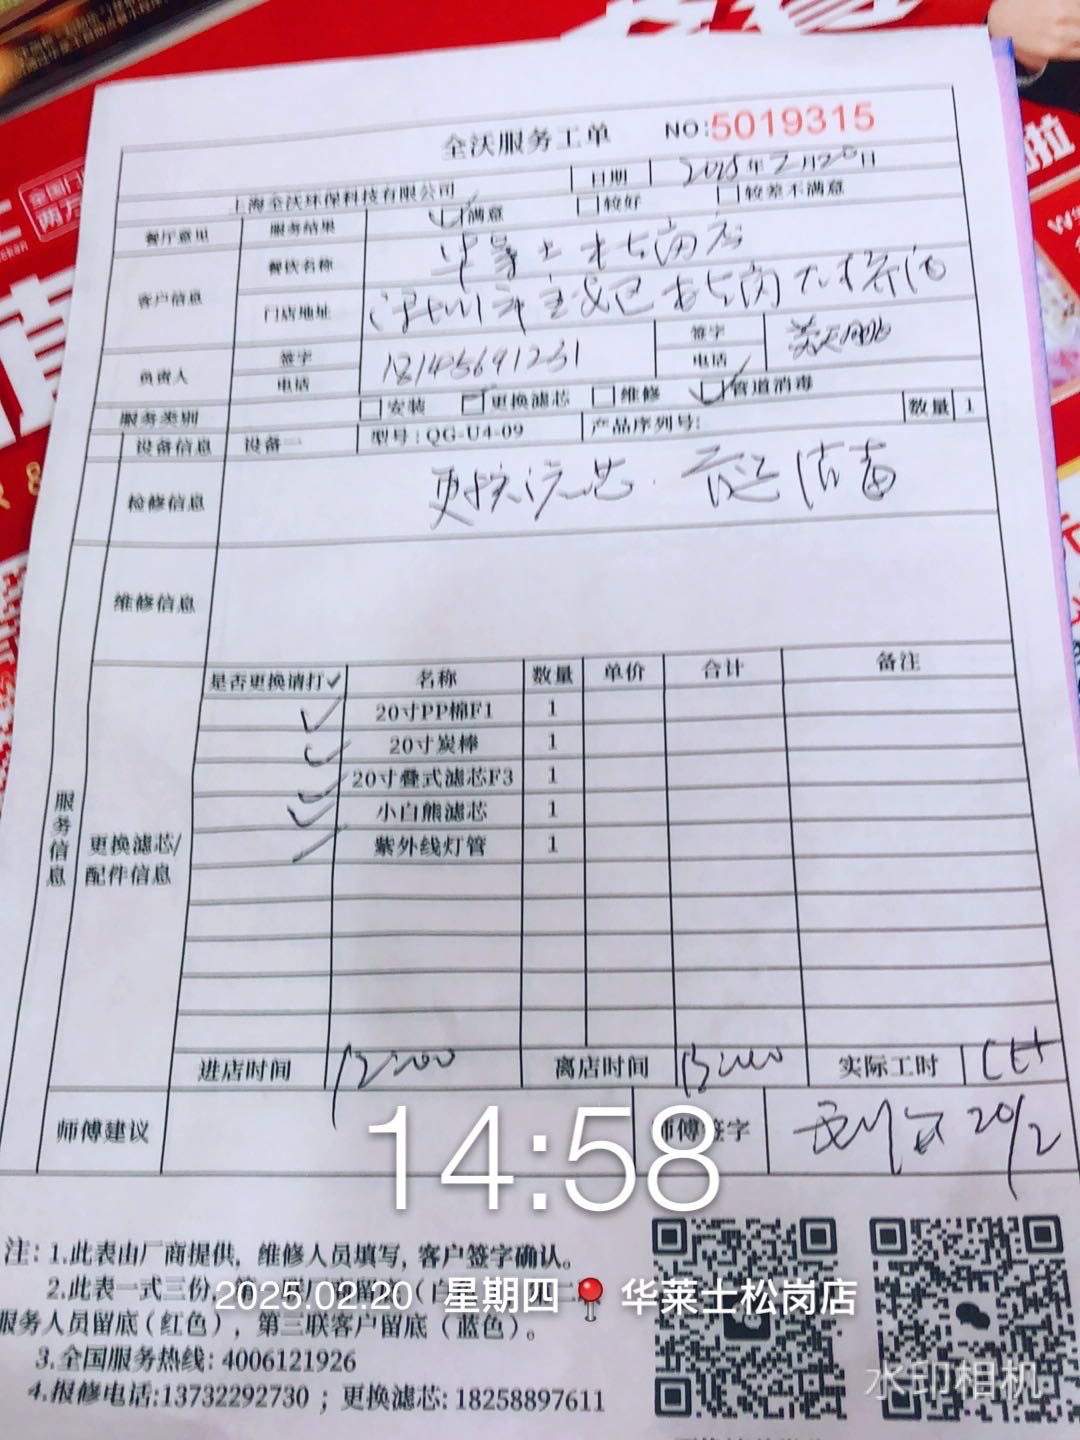 全沃服务工单
NO:5019315
上海全沃环保科技有限公司 日期 2025年2月20日
餐厅意见 服务结果 ☑满意 □较好 □较差不满意
客户信息 餐饮名称 华莱士松岗店
门店地址 深圳市宝安区松岗
负责人 签字 签字
电话 18145691231 电话
服务类别 □安装 ☑更换滤芯 □维修 ☑管道消毒
设备信息 设备一 型号:QG-U4-09 产品序列号: 数量 1
检修信息 更换滤芯. 管道消毒
维修信息
服务信息
更换滤芯/
配件信息
是否更换请打✓ 名称 数量 单价 合计 备注
✓ 20寸PP棉F1 1
✓ 20寸炭棒 1
✓ 20寸叠式滤芯F3 1
✓ 小白熊滤芯 1
✓ 紫外线灯管 1
进店时间 12:00 离店时间 13:00 实际工时
师傅建议 师傅签字 20/2
14:58
注: 1.此表由厂商提供, 维修人员填写, 客户签字确认。
2.此表一式三份,
服务人员留底(红色), 第三联客户留底(蓝色)。
2025.02.20 星期四 华莱士松岗店
3.全国服务热线: 4006121926
4.报修电话:13732292730 ; 更换滤芯: 18258897611
水印相机